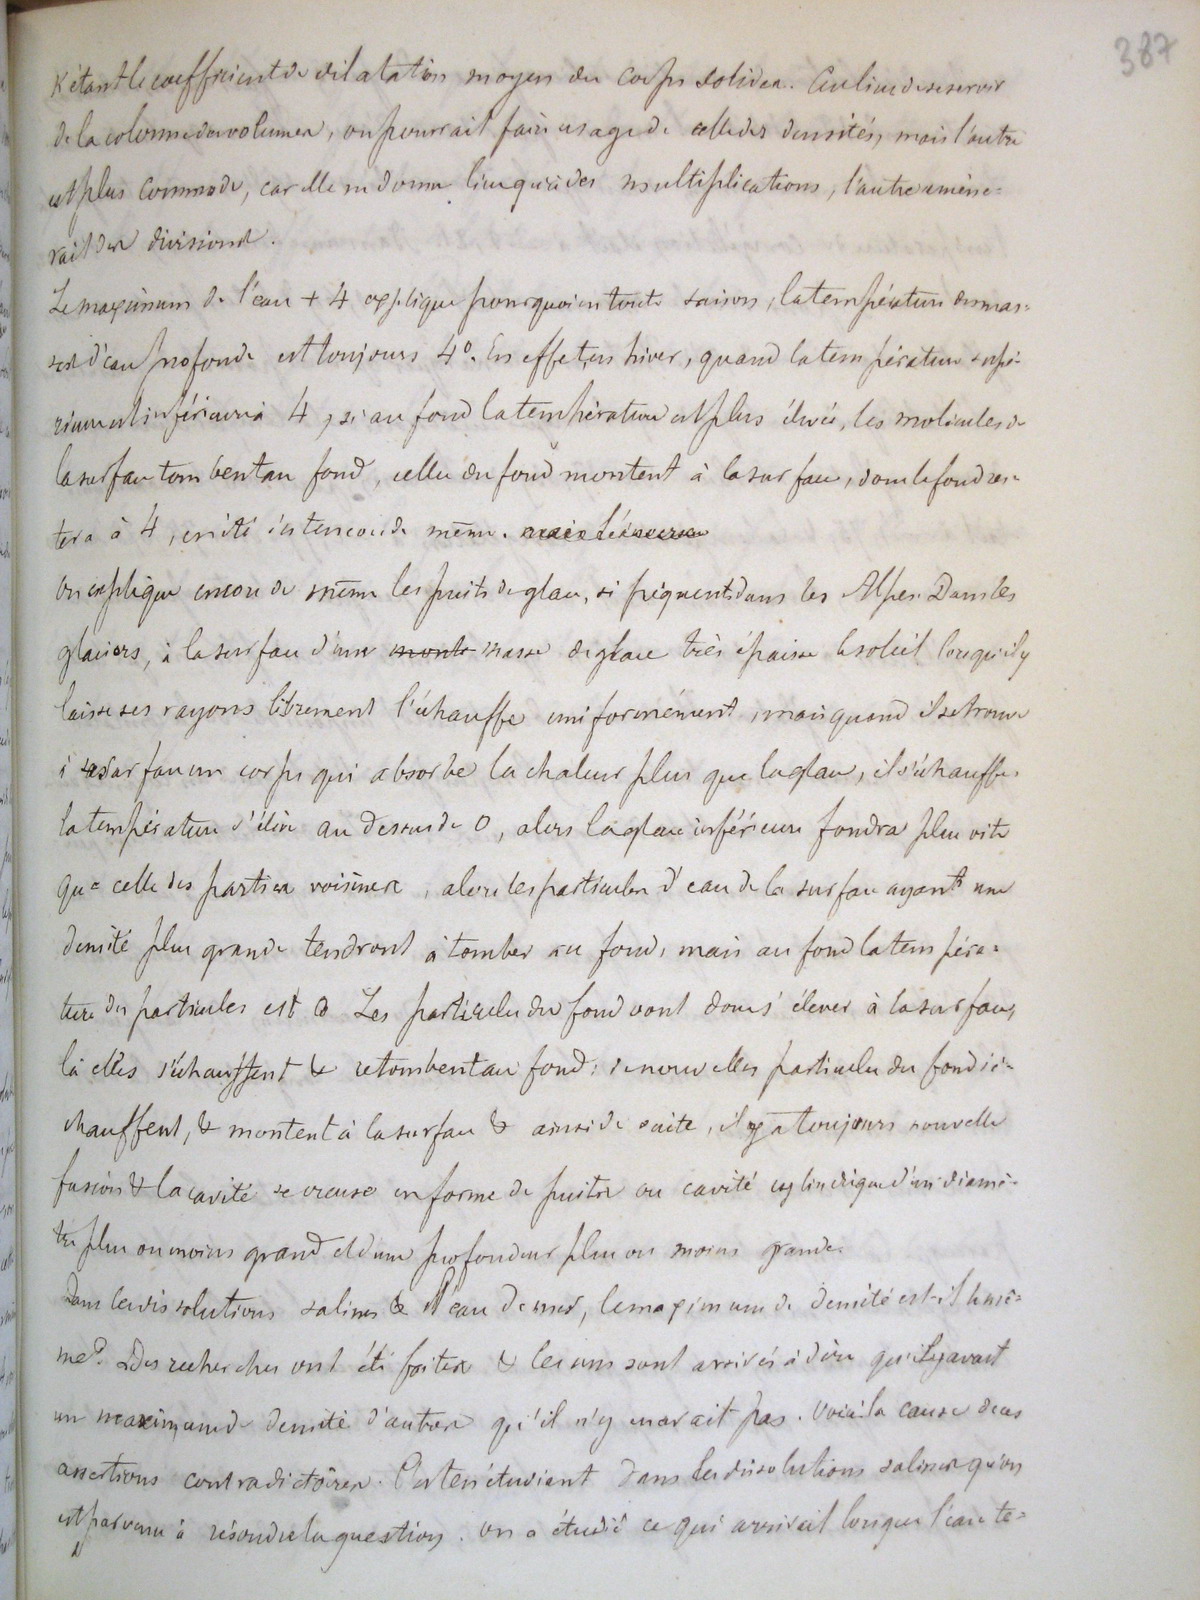 387
K étant le coefficient de dilatation moyen du corps solide. Au lieu de se servir
de la colonne des volumes, on pourrait faire usage de celle des densités, mais l'autre
est plus commode, car elle ne donne lieu qu'à des multiplications, l'autre amène=
rait des divisions.
Le maximum de l'eau + 4 explique pourquoi en toute saison, la température des mas=
ses d'eau profonde est toujours 4°. En effet, en hiver, quand la température supé=
rieure est inférieure à 4, si au fond la température est plus élevée, les molécules de
la surface tombent au fond, celles du fond montent à la surface, donc le fond res=
tera à 4, en été c'est encore de même.
On explique encore de même les puits de glace, si fréquents dans les Alpes. Dans les
glaciers, à la surface d'une monte masse de glace très épaisse le soleil lorsqu'il y
laisse ses rayons librement l'échauffe uniformément, mais quand il se trouve
à sa surface un corps qui absorbe la chaleur plus que la glace, il s'échauffe,
la température s'élève au dessus de 0, alors la glace inférieure fondra plus vite
que celle des parties voisines, alors les particules d'eau de la surface ayant une
densité plus grande tendront à tomber au fond, mais au fond la tempéra=
ture des particules est 0. Les particules du fond vont donc s'élever à la surface,
là elles s'échauffent & retombent au fond: de nouvelles particules du fond s'é=
chauffent, & montent à la surface & ainsi de suite, il y a toujours nouvelle
fusion & la cavité se creuse en forme de puits ou cavité cylindrique d'un diamè=
tre plus ou moins grand et d'une profondeur plus ou moins grande.
Dans les dissolutions salines & l'eau de mer, le maximum de densité est-il le mê=
me? Des recherches ont été faites & les uns sont arrivés à dire qu'il y avait
un maximum de densité d'autres qu'il n'y en avait pas. Voici la cause de ces
assertions contradictoires. C'est en étudiant dans les dissolutions salines qu'on
est parvenu à résoudre la question. On a étudié ce qui arrivait lorsque l'eau te=